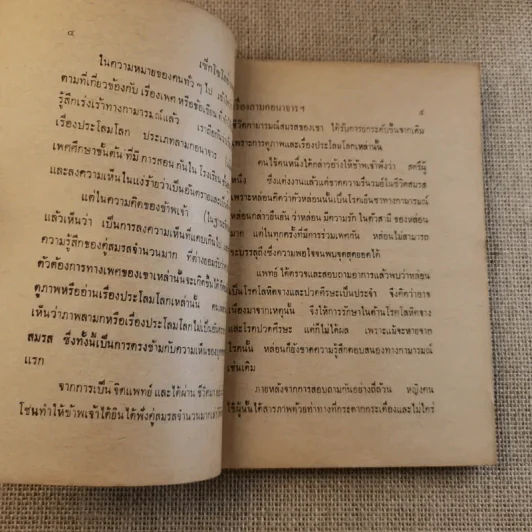 ๔
เซ็กโซโล
ในความหมายของคนทั่ว ๆ ไป
ตามที่เกี่ยวข้องกับ เรื่องเพศ หรือข้อเขียน
รู้สึกเร่งเร้าทางกามารมณ์แล้ว
เรื่องประโลมโลก ประเภทลามกอนาจาร
เพศศึกษาขั้นต้น ที่มี การสอน กันใน โรงเรียน
และลงความเห็นในแง่ร้ายว่าเป็นอันตราย
แต่ในความคิดของข้าพเจ้า
แล้วเห็นว่า เป็นการลงความเห็นที่แคบเกินไป
ความรู้สึกของคู่สมรสจำนวนมาก ที่ต่างยอมรับว่า
ตัวต้องการทางเพศของเขาเหล่านั้นจะเกิดขึ้นได้
ดูภาพหรืออ่านเรื่องประโลมโลกเหล่านั้น
เห็นว่าภาพลามกหรือเรื่องประโลมโลกไม่เป็นอันตราย
สมรส ซึ่งทั้งนี้เป็นการตรงข้ามกับความเห็นของ
แรก
จากการเป็น จิตแพทย์ และได้ผ่าน ชีวิตมา
โชนทำให้ข้าพเจ้าได้ยิน ได้ฟังคู่สมรสจำนวนมากเล่า
เรื่องลามกอนาจาร ฯ
๕
ชีวิตกามารมณ์สมรสของเขา ได้รับการยกระดับขึ้นจากเดิม
เพราะการดูภาพและเรื่องประโลมโลกเหล่านั้น
คนไข้คนหนึ่งได้กล่าวอย่างให้ข้าพเจ้าฟังว่า สตรีผู้
หนึ่ง ซึ่งแต่งงานแล้วแต่ขาดความรื่นรมย์ในชีวิตสมรส
เพราะหล่อนคิดว่าตัวหล่อนนั้นเป็นโรคเย็นชาทางกามารมณ์
หล่อนกล่าวยืนยันว่า หล่อน มีความรัก ในตัวสามี ของหล่อน
มาก แต่ในทุกครั้งที่มีการร่วมเพศกัน หล่อนไม่สามารถ
จะบรรลุถึงซึ่งความพอใจจนพบจุดสุดยอดได้
แพทย์ ได้ตรวจและสอบถามอาการแล้วพบว่าหล่อน
เป็นโรคโลหิตจางและปวดศีรษะเป็นประจำ จึงคิดว่าอาจ
เนื่องมาจากเหตุนั้น จึงให้การรักษาในด้านโรคโลหิตจาง
และโรคปวดศีรษะ แต่ก็ไม่ได้ผล เพราะแม้จะหายจาก
โรคนั้น หล่อนก็ยังขาดความรู้สึกตอบสนองทางกามารมณ์
เช่นเดิม
ภายหลังจากการสอบถามกันอย่างถี่ถ้วน หญิงคน
ไข้ผู้นั้นได้สารภาพด้วยท่าทางที่กระดากกระเดื่องและไม่ใคร่